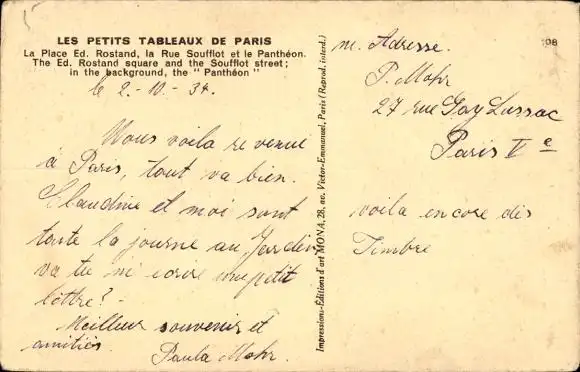 LES PETITS TABLEAUX DE PARIS
La Place Ed. Rostand, la Rue Soufflot et le Panthéon.
The Ed. Rostand square and the Soufflot street;
in the background, the "Panthéon"
le 2-10-34.
Nous voila revenue
à Paris, tout va bien.
Claudine et moi sont
toute la journe au Jardin
va tu mi ecrire une petit
lettre? -
Meilleur souvenir et
amitiés.
Paula Mohr.
Impressions-Éditions d'art MONA, 28, av. Victor-Emmanuel, Paris (Reprod. interd.)
108
m. Adresse.
P. Mohr
27 rue Gay Lussac
Paris V e
voila encore des
Timbre